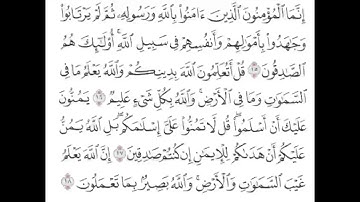 إِنَّمَا الْمُؤْمِنُونَ الَّذِينَ ءَامَنُوا بِاللَّهِ وَرَسُولِهِ ثُمَّ لَمْ يَرْتَابُوا
وَجَٰهَدُوا بِأَمْوَٰلِهِمْ وَأَنفُسِهِمْ فِي سَبِيلِ اللَّهِ ۚ أُولَٰٓئِكَ هُمُ
الصَّٰدِقُونَ ١٥ قُلْ أَتُعَلِّمُونَ اللَّهَ بِدِينِكُمْ وَاللَّهُ يَعْلَمُ مَا فِي
السَّمَٰوَٰتِ وَمَا فِي الْأَرْضِ ۚ وَاللَّهُ بِكُلِّ شَيْءٍ عَلِيمٌ ١٦ يَمُنُّونَ
عَلَيْكَ أَنْ أَسْلَمُوا ۖ قُل لَّا تَمُنُّوا عَلَيَّ إِسْلَٰمَكُم ۖ بَلِ اللَّهُ يَمُنُّ
عَلَيْكُمْ أَنْ هَدَىٰكُمْ لِلْإِيمَٰنِ إِن كُنتُمْ صَٰدِقِينَ ١٧ إِنَّ اللَّهَ يَعْلَمُ
غَيْبَ السَّمَٰوَٰتِ وَالْأَرْضِ ۚ وَاللَّهُ بَصِيرٌۢ بِمَا تَعْمَلُونَ ١٨